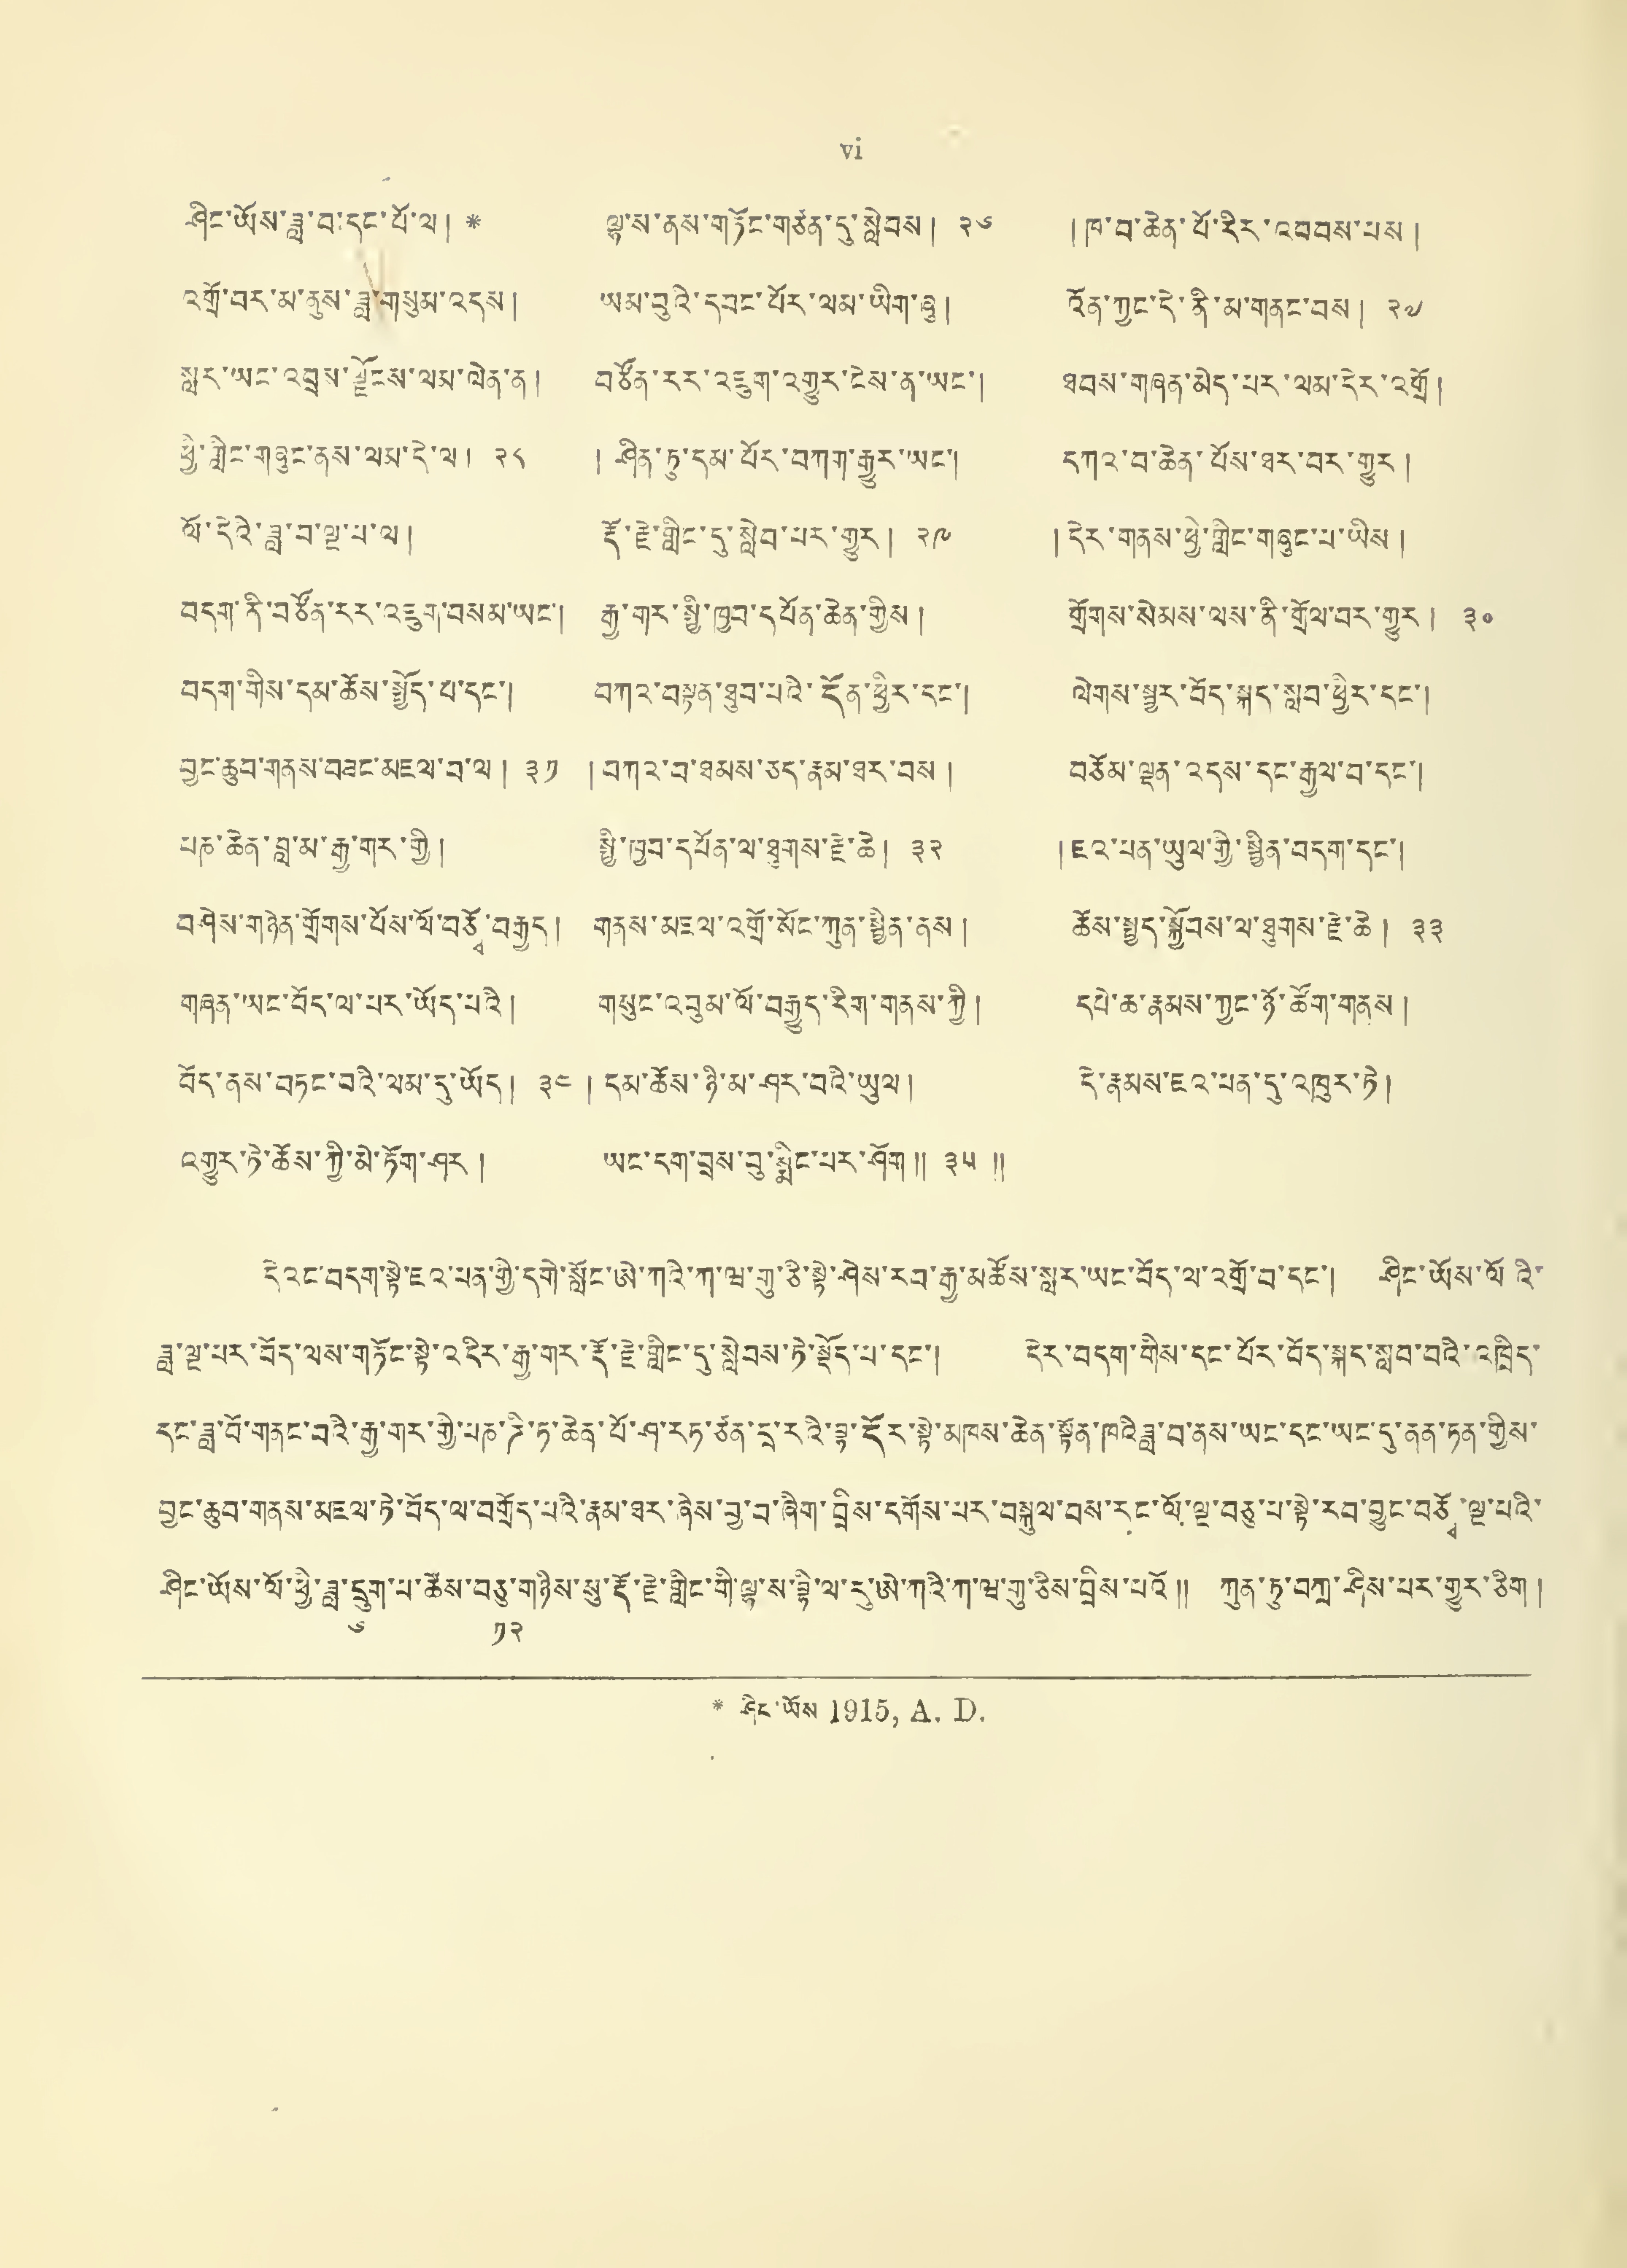 vi
ཤིང་ཡོས་ཟླ་བ་དང་པོ་ལ། * ལྷ་ས་ནས་གཏོང་གཙན་དུ་སླེབས། ༢༦ །ཁ་བ་ཆེན་པོ་དེར་འབབས་པས།
འགྲོ་བར་མ་ནུས་ཟླ་གསུམ་འདས། ཡམ་བུའི་དབང་པོར་ལམ་ཡིག་ཞུ། འོན་ཀྱང་དེ་ནི་མ་གནང་བས། ༢༧
སླར་ཡང་འབྲས་ལྗོངས་ལམ་ལེན་ན། བཙོན་རར་འཇུག་འགྱུར་ངེས་ན་ཡང་། ཐབས་གཞན་མེད་པར་ལམ་དེར་འགྲོ།
ཕྱི་གླིང་གཞུང་ནས་ལམ་དེ་ལ། ༢༨ ། ཤིན་ཏུ་དམ་པོར་བཀག་རྒྱུར་ཡང་། དཀའ་བ་ཆེན་པོས་ཐར་བར་གྱུར།
ལོ་དེའི་ཟླ་བ་ལྔ་པ་ལ། རྡོ་རྗེ་གླིང་དུ་སླེབ་པར་གྱུར། ༢༩ །དེར་གནས་ཕྱི་གླིང་གཞུང་པ་ཡིས།
བདག་ནི་བཙོན་རར་འཇུག་བསམ་ཡང་། རྒྱ་གར་སྤྱི་ཁྱབ་དཔོན་ཆེན་གྱིས། གྲོགས་སེམས་ལས་ནི་གྲོལ་བར་གྱུར། ༣༠
བདག་གིས་དམ་ཆོས་སྤྱོད་པ་དང་། བཀའ་བསྟན་ཐུབ་པའི་དོན་ཕྱིར་དང་། ལེགས་སྦྱར་བོད་སྐད་སླབ་ཕྱིར་དང་།
བྱང་ཆུབ་གནས་བཟང་མཇལ་བ་ལ། ༣༡ །བཀའ་བ་ཐམས་ཅད་རྣམ་ཐར་བས། བཅོམ་ལྡན་འདས་དང་རྒྱལ་བ་དང་།
པཎ་ཆེན་བླ་མ་རྒྱ་གར་གྱི། སྤྱི་ཁྱབ་དཔོན་ལ་ཐུགས་རྗེ་ཆེ། ༣༢ །ཇའ་པན་ཡུལ་གྱི་སྦྱིན་བདག་དང་།
བཤེས་གཉེན་གྲོགས་པོས་ལོ་བཅོྭ་བརྒྱད། གནས་མཇལ་འགྲོ་སོང་ཀུན་སྦྱིན་ནས། ཆོས་སྤྱད་སྐྱོབས་ལ་ཐུགས་རྗེ་ཆེ། ༣༣
གཞན་ཡང་བོད་ལ་པར་ཡོད་པའི། གསུང་འབུམ་ལོ་བརྒྱུད་རིག་གནས་ཀྱི། དཔེ་ཆ་རྣམས་ཀྱང་ཉོ་ཚོག་གནས།
བོད་ནས་བཏང་བའི་ལམ་དུ་ཡོད། ༣༤ །དམ་ཆོས་ཉི་མ་ཤར་བའི་ཡུལ། དེ་རྣམས་ཇའ་པན་དུ་འཁུར་ཏེ།
འགྱུར་ཏེ་ཆོས་ཀྱི་མེ་ཏོག་ཤར། ཡང་དག་བྲས་བུ་སྨིང་པར་ཤོག།། ༣༥ །།
དེའང་བདག་སྟེ་ཇའ་པན་གྱི་དགེ་སློང་ཨེ་ཀའི་ཀ་ཝ་གུ་ཅི་སྟེ་ཤེས་རབ་རྒྱ་མཚོས་སླར་ཡང་བོད་ལ་འགྲོ་བ་དང་། ཤིང་ཡོས་ལོ་འི་
ཟླ་ལྔ་པར་བོད་ལས་གཏོང་སྟེ་འདིར་རྒྱ་གར་རྡོ་རྗེ་གླིང་དུ་སླེབས་ཏེ་སྡོད་པ་དང་། དེར་བདག་གིས་དང་པོར་བོད་སྐད་སླབ་བའི་འཁྲིད་
དང་ཟླ་བོ་གནང་བའི་རྒྱ་གར་གྱི་པཎ་ཌི་ཏ་ཆེན་པོ་ཤ་རཏ་ཙན་དྲ་རའི་བྷ་དོར་སྟེ་མཁས་ཆེན་སྟོན་ཁའི་ཟླ་བ་ནས་ཡང་དང་ཡང་དུ་ནན་ཏན་གྱིས་
བྱང་ཆུབ་གནས་མཇལ་ཏེ་བོད་ལ་བགྲོད་པའི་རྣམ་ཐར་ཞེས་བྱ་བ་ཞིག་བྲིས་དགོས་པར་བསྐུལ་བས་རང་ལོ་ལྔ་བཅུ་པ་སྟེ་རབ་བྱུང་བཅོྭ་ལྔ་པའི་
ཤིང་ཡོས་ལོ་ཕྱི་ཟླ་དྲུག་པ་ཚེས་བཅུ་གཉིས་སུ་རྡོ་རྗེ་གླིང་གི་ལྷ་ས་བྷི་ལ་རུ་ཨེ་ཀའི་ཀ་ཝ་གུ་ཅིས་བྲིས་པའོ།། ཀུན་ཏུ་བཀྲ་ཤིས་པར་གྱུར་ཅིག།
༦ ༡༢
* ཤིང་ཡོས 1915, A. D.